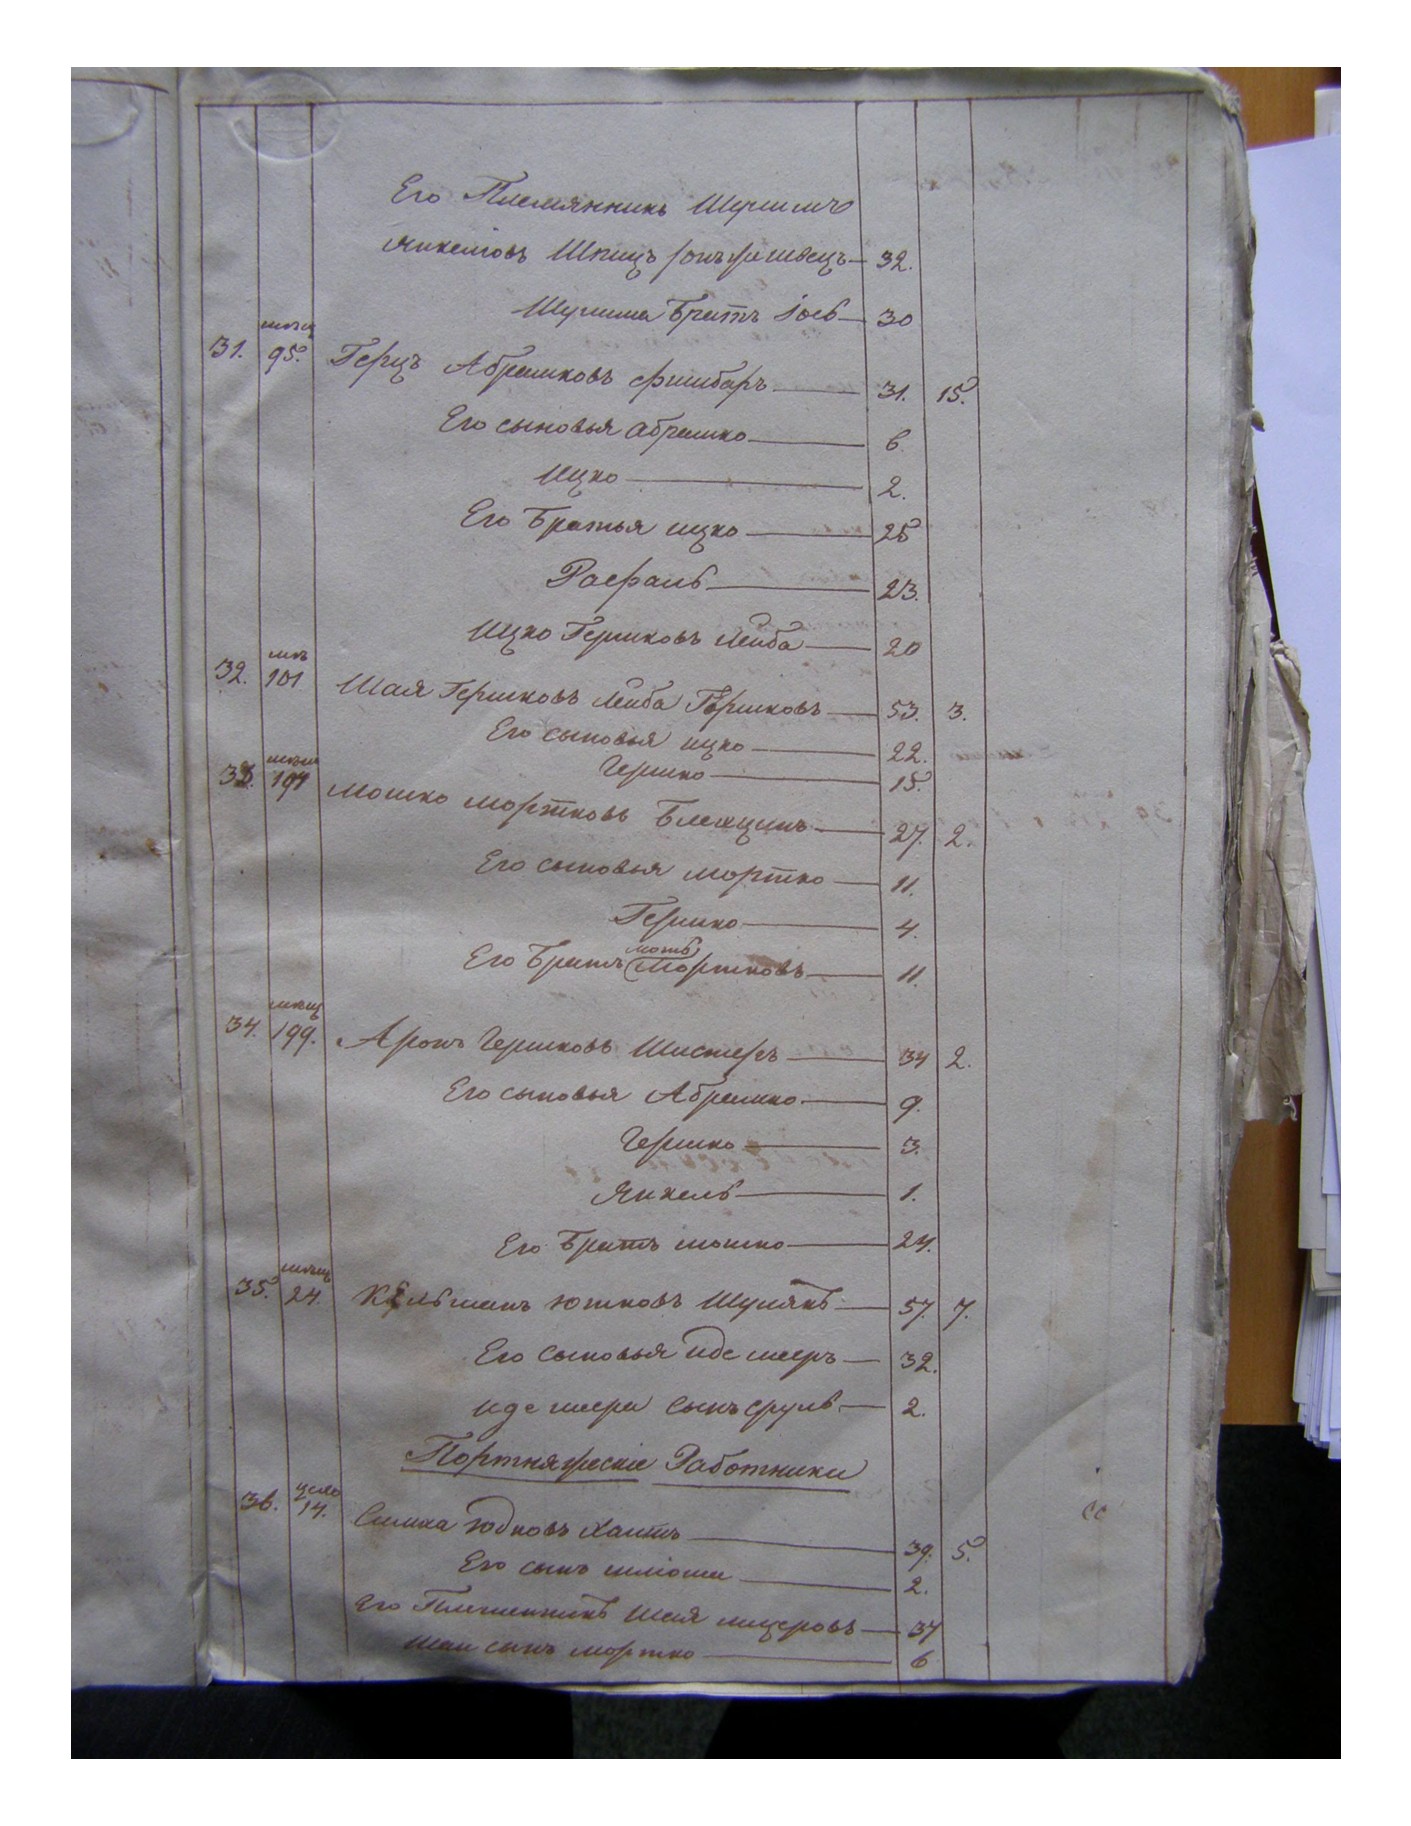 Его Племянникъ Шулимъ
Янкелiовъ Шпицъ 32.
Шулима Братъ Iось 30
31. мещ 95. Герцъ Абрамковъ Фишбаръ 31. 15.
Его сыновья абрамко 6
Ицко 2.
Его Братья ицко 25
Расфаль 23.
Ицко Гершковъ Лейба 20
32. 101 Шая Гершковъ Лейба Гершковъ 53. 3.
Его сыновья ицко 22.
Гершко 15.
33. 197 Мошко Мортковъ 27. 2.
Его сыновья мортко 11.
Гершко 4.
Его Братъ моть Мортковъ 11.
34. мещ 199. Аронъ Гершковъ Шистеръ 34 2.
Его сыновья Абрамко 9.
Гершко 3.
Янкель 1.
Его Братъ мошко 24.
35. мещ 24. Кельманъ Ютковъ 57. 7.
Его Сыновья иде мееръ 32.
иде меера Сынъ сруль 2.
Портняческiе Работники
36. цехо 14. Симха Юдковъ Хаитъ 39. 5.
Его сынъ 2.
Его Племенникъ Шая 37
Шаи сынъ мортко 6